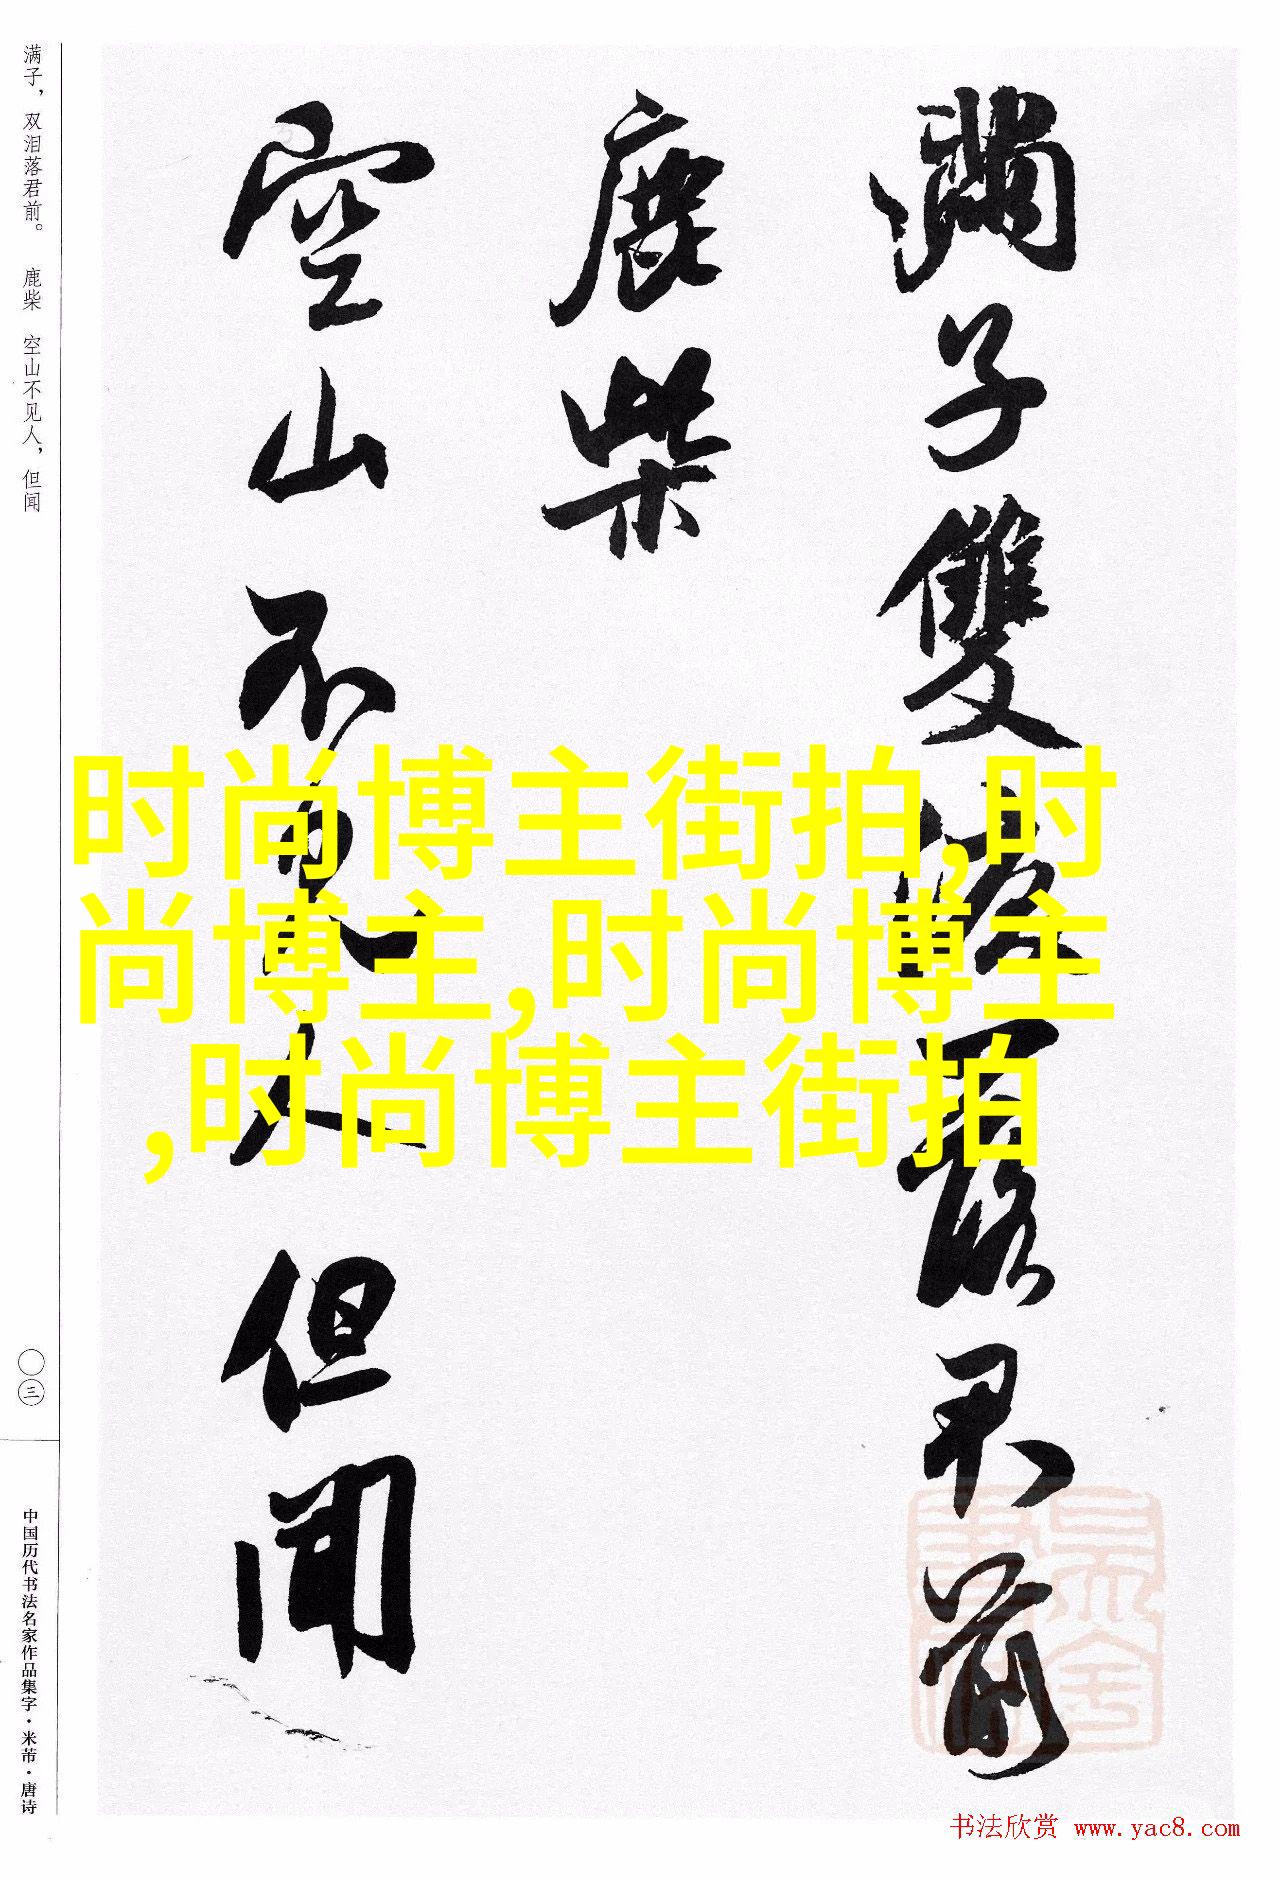 满子，双泪落君前。 鹿柴 空山不见人，但闻
滿子雙淚落君前
鹿柴
空山不見人但聞
时尚博主街拍,时
尚博主,时尚博主
,时尚博主街拍
〇三
中国历代书法名家作品集字·米芾·唐诗
书法欣赏 www.yac8.com